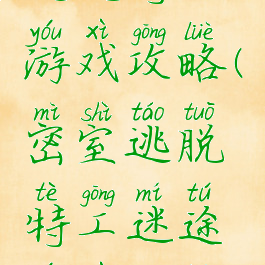 yóu xì gōng lüè
游戏攻略(
mì shì táo tuō
密室逃脱
tè gōng mí tú
特工迷途